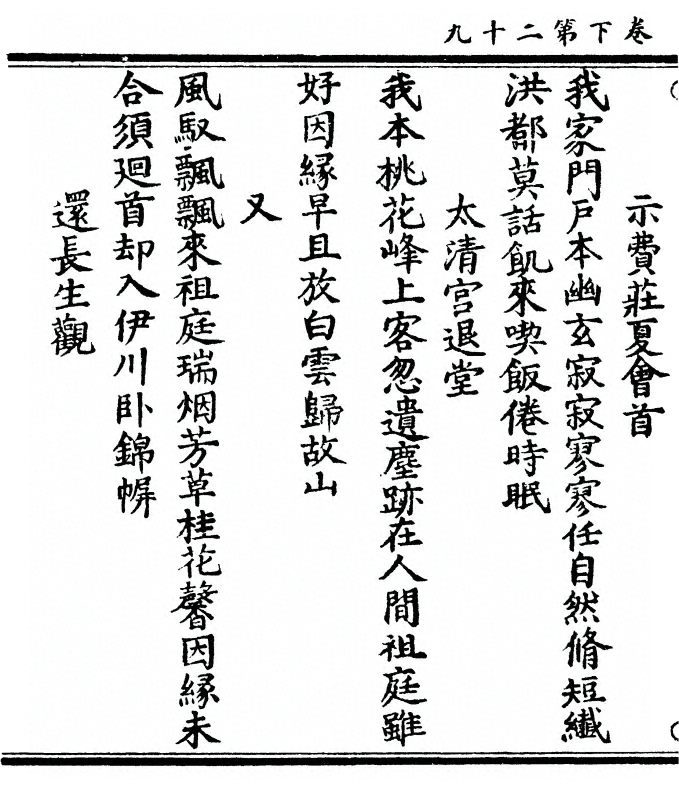 卷下第二十九
示費莊夏會首
我家門戶本幽玄寂寂寥寥任自然脩短纖
洪都莫話飢來喫飯倦時眠
太清宮退堂
我本桃花峰上客忽遺塵跡在人間祖庭雖
好因緣早且放白雲歸故山
又
風馭飄飄來祖庭瑞烟芳草桂花馨因緣未
合須廻首却入伊川卧錦幈
還長生觀